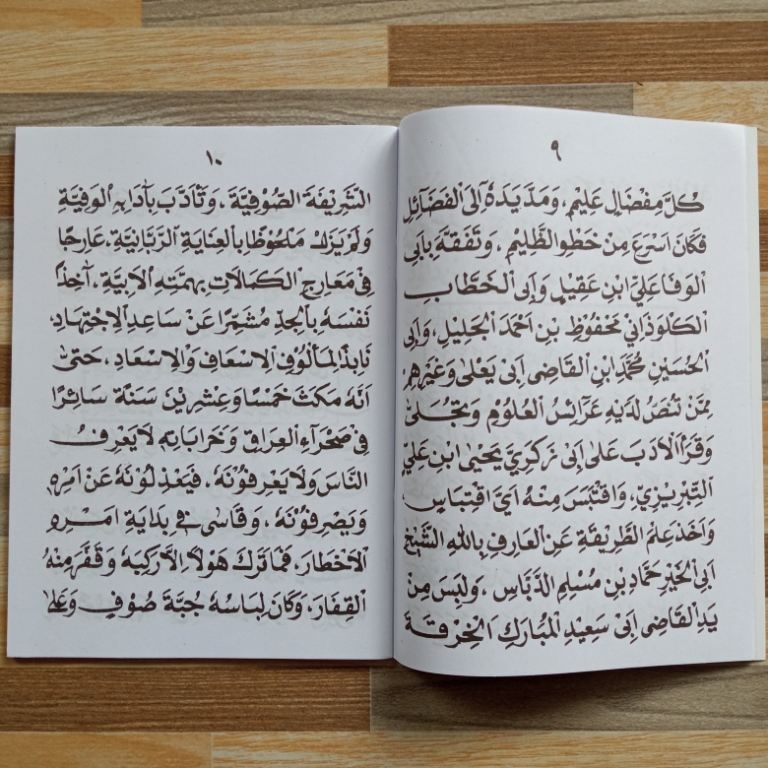 ٩
كُلَّ مِفْضَالٍ عَلِيْمٍ، وَمَدَّ يَدَهُ اِلَى الْفَضَآئِلِ
فَكَانَ اَسْرَعَ مِنْ خَطْوِ الظَّلِيْمِ، وَتَفَقَّهَ بِاَبِى
الْوَفَا عَلِيِّ ابْنِ عَقِيْلٍ وَاَبِى الْخَطَّابِ
الْكَلْوَذَانِيْ مَحْفُوْظِ بْنِ اَحْمَدَ الْجَلِيْلِ، وَاَبِى
الْحُسَيْنِ مُحَمَّدِ ابْنِ الْقَاضِى اَبِىْ يَعْلَى وَغَيْرِهِمْ
مِمَّنْ تُنَصُّ لَدَيْهِ عَرَآئِسُ الْعُلُوْمِ وَتُجْلَى
وَقَرَأَ الْاَدَبَ عَلَى اَبِىْ زَكَرِيَّ يَحْيَى ابْنِ عَلِيٍّ
التِّبْرِيْزِيِّ، وَاقْتَبَسَ مِنْهُ اَيَّ اقْتِبَاسٍ،
وَاَخَذَ عِلْمَ الطَّرِيْقَةِ عَنِ الْعَارِفِ بِاللهِ الشَّيْخِ
اَبِى الْخَيْرِ حَمَّادِ بْنِ مُسْلِمٍ الدَّبَّاسِ، وَلَبِسَ مِنْ
يَدِ الْقَاضِى اَبِىْ سَعِيْدٍ الْمُبَارَكِ الْخِرْقَةَ
١٠
الشَّرِيْفَةَ الصُّوْفِيَّةَ، وَتَأَدَّبَ بِاٰدَابِهِ الْوَفِيَّةِ
وَلَمْ يَزَلْ مَلْحُوْظًا بِالْعِنَايَةِ الرَّبَّانِيَّةِ، عَارِجًا
فِيْ مَعَارِجِ الْكَمَالَاتِ بِهِمَّتِهِ الْاَبِيَّةِ، اٰخِذًا
نَفْسَهُ بِالْجِدِّ مُشَمِّرًا عَنْ سَاعِدِ الْاِجْتِهَادِ،
نَابِذًا لِمَأْلُوْفِ الْاِسْعَافِ وَالْاِسْعَادِ، حَتَّى
اَنَّهُ مَكَثَ خَمْسًا وَعِشْرِيْنَ سَنَةً سَائِرًا
فِيْ صَحْرَآءِ الْعِرَاقِ وَخَرَابَاتِهِ لَا يَعْرِفُ
النَّاسَ وَلَا يَعْرِفُوْنَهُ، فَيَعْذِلُوْنَهُ عَنْ اَمْرِهِ
وَيَصْرِفُوْنَهُ، وَقَاسَى فِيْ بِدَايَةِ اَمْرِهِ
الْاَخْطَارَ، فَمَا تَرَكَ هَوْلًا اِلَّا رَكِبَهُ وَقَفَّرَ مِنْهُ
الْقِفَارَ، وَكَانَ لِبَاسُهُ جُبَّةَ صُوْفٍ وَعَلَى